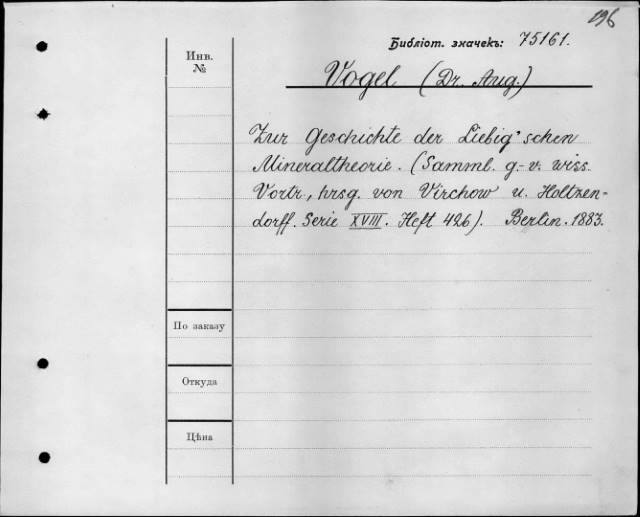 196
Библіот. значекъ: 75161.
Инв.
№
Vogel (Dr. Aug.)
Zur Geschichte der Liebig'schen
Mineraltheorie. (Samml. g.-v. wiss.
Vortr., hrsg. von Virchow u. Holtzen-
dorff. Serie XVIII. Heft 426). Berlin. 1883.
По заказу
Откуда
Цѣна